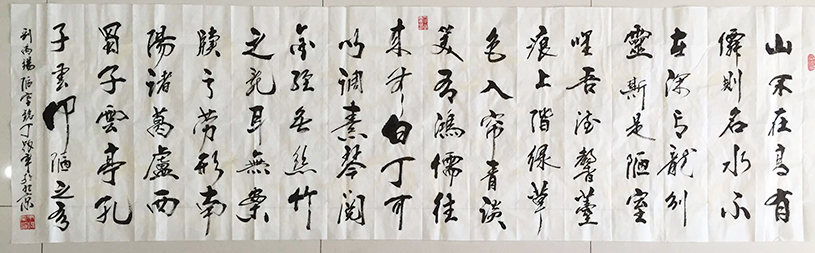 山不在高有
僊則名水不
在深有龍則
靈斯是陋室
唯吾德馨薹
痕上階綠草
色入帘青談
笑有鴻儒往
來無白丁可
以調素琴閱
金經無絲竹
之亂耳無案
牘之勞形南
陽諸葛廬西
蜀子雲亭孔
子云何陋之有
劉禹錫陋室銘丁於北京